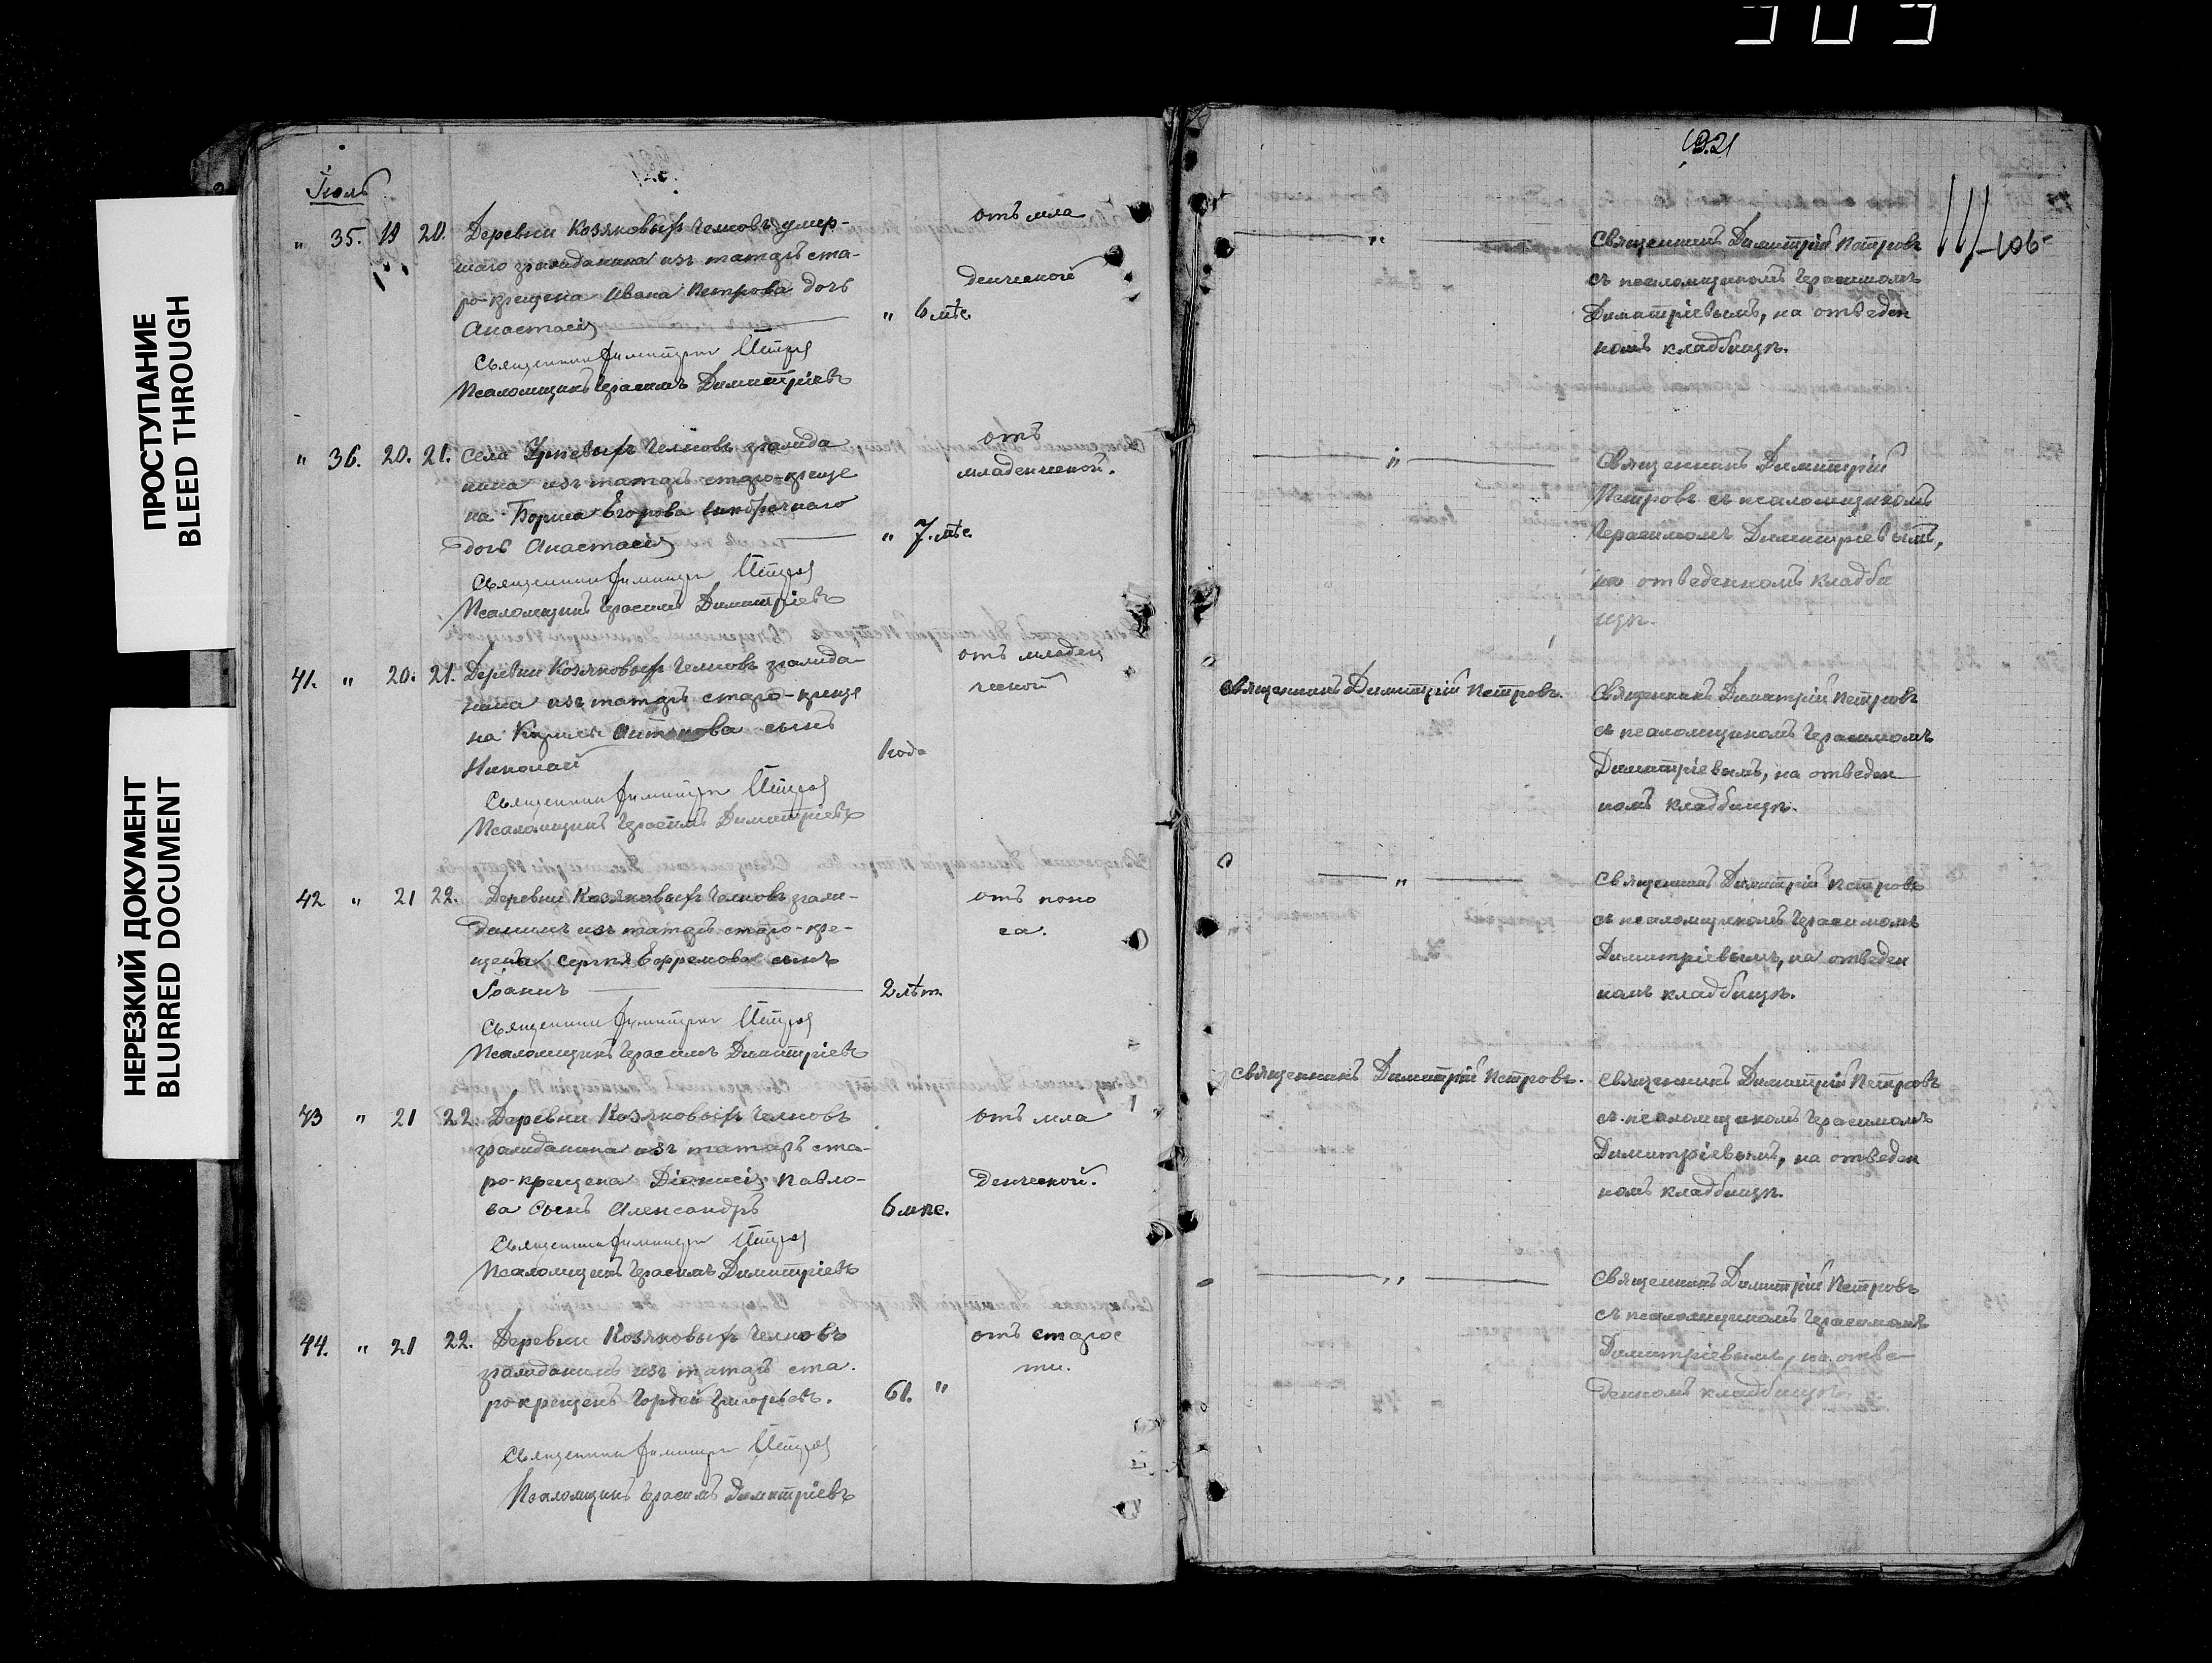 ПРОСТУПАНИЕ
BLEED THROUGH
НЕРЕЗКИЙ ДОКУМЕНТ
BLURRED DOCUMENT
Іюль
" 35. 19 20. Деревни Козяковыхъ Челновъ умер-
шаго гражданина изъ татаръ ста-
ро-крещена Ивана Петрова дочь
Анастасія " 6 мѣс. отъ мла
денческой
Священникъ Димитрій Петровъ
Псаломщикъ Герасимъ Димитріевъ
" 36. 20. 21. Села Челновъ гражда
нина изъ татаръ старо-креще
на Бориса Егорова
дочь Анастасія " 7. мѣс. отъ
младенческой.
Священникъ Димитрій Петровъ
Псаломщикъ Герасимъ Димитріевъ
41. " 20. 21. Деревни Козяковыхъ Челновъ гражда-
нина изъ татаръ старо-креще
на Антонова сынъ
Николай 1 год. отъ младен
ческой
Священникъ Димитрій Петровъ
Псаломщикъ Герасимъ Димитріевъ
42 " 21 22. Деревни Козяковыхъ Челновъ граж-
данинъ изъ татаръ старо-кре-
щена Сергѣя Ефремова сынъ
Іоаннъ 2 лѣт. отъ поно
са.
Священникъ Димитрій Петровъ
Псаломщикъ Герасимъ Димитріевъ
43 " 21 22. Деревни Козяковыхъ Челновъ
гражданина изъ татаръ ста-
ро-крещена Діонисія Павло-
ва сынъ Александръ 6 мѣс. отъ мла
денческой.
Священникъ Димитрій Петровъ
Псаломщикъ Герасимъ Димитріевъ
44. " 21 22. Деревни Козяковыхъ Челновъ
гражданинъ изъ татаръ ста.
ро-крещенъ Гордей Григорьевъ. 61. " отъ старос
ти.
Священникъ Димитрій Петровъ
Псаломщикъ Герасимъ Димитріевъ
1921
106
" Священникъ Димитрій Петровъ
съ псаломщикомъ Герасимомъ
Димитріевымъ, на отведен
номъ кладбищѣ.
" Священникъ Димитрій
Петровъ съ псаломщикомъ
Герасимомъ Димитріевымъ,
на отведенномъ кладби
щѣ.
Священникъ Димитрій Петровъ. Священникъ Димитрій Петровъ
съ псаломщикомъ Герасимомъ
Димитріевымъ, на отведен
номъ кладбищѣ.
" Священникъ Димитрій Петровъ
съ псаломщикомъ Герасимомъ
Димитріевымъ, на отведен
номъ кладбищѣ.
Священникъ Димитрій Петровъ. Священникъ Димитрій Петровъ
съ псаломщикомъ Герасимомъ
Димитріевымъ, на отведен
номъ кладбищѣ.
" Священникъ Димитрій Петровъ
съ псаломщикомъ Герасимомъ
Димитріевымъ, на отве-
денномъ кладбищѣ.